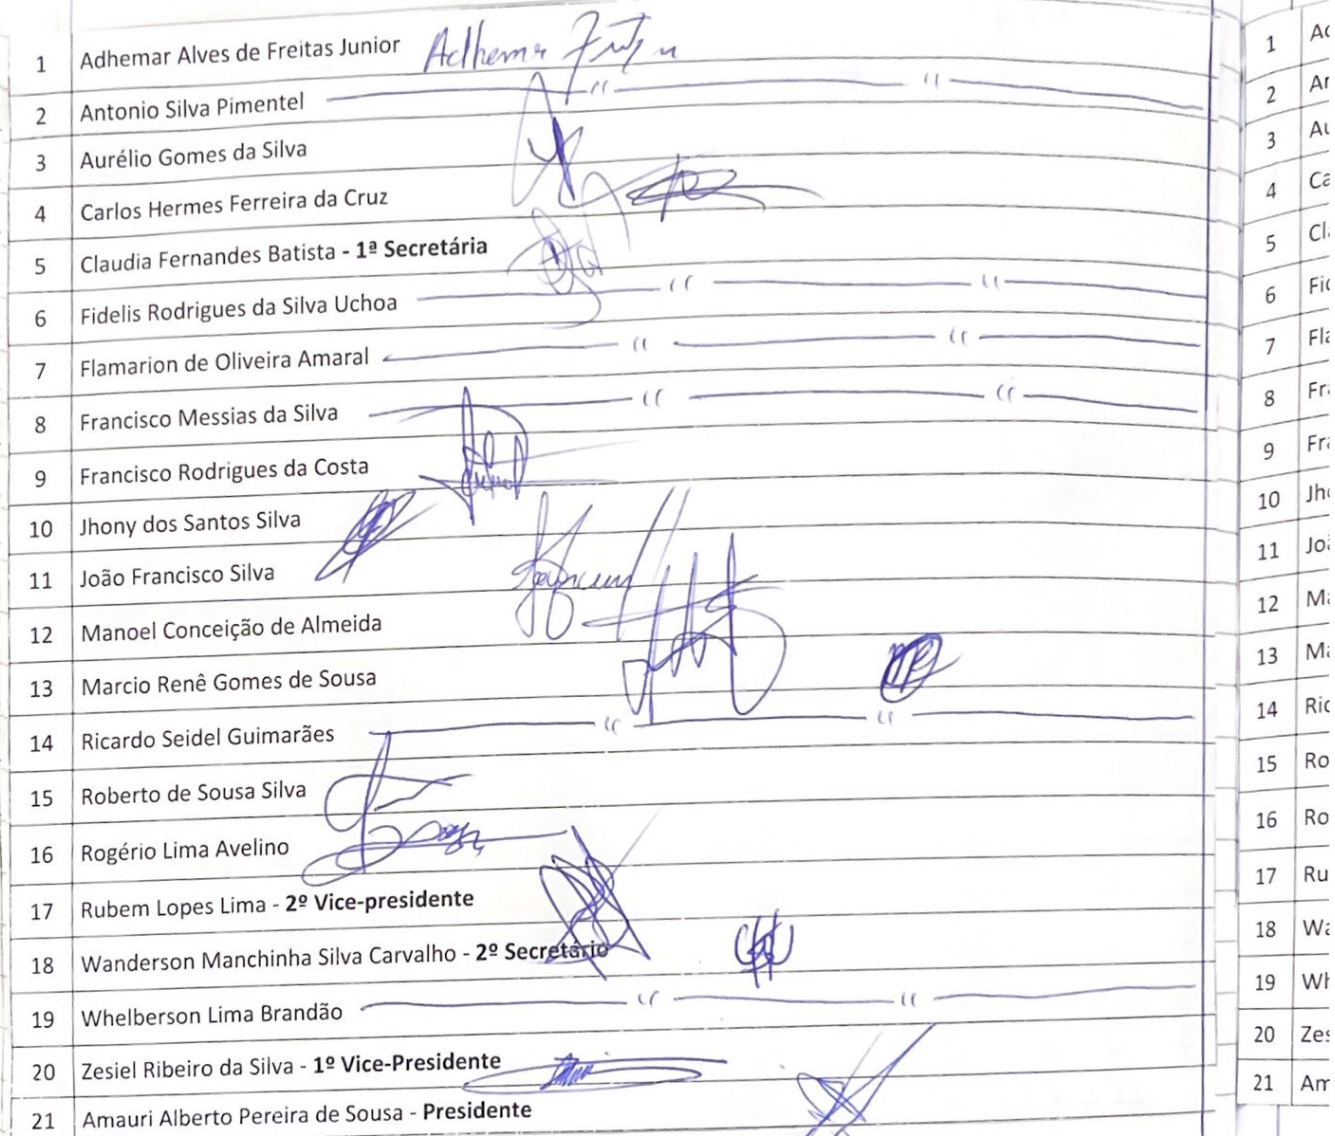 1 Adhemar Alves de Freitas Junior Adhemar Freitas
2 Antonio Silva Pimentel
3 Aurélio Gomes da Silva
4 Carlos Hermes Ferreira da Cruz
5 Claudia Fernandes Batista - 1ª Secretária
6 Fidelis Rodrigues da Silva Uchoa
7 Flamarion de Oliveira Amaral
8 Francisco Messias da Silva
9 Francisco Rodrigues da Costa
10 Jhony dos Santos Silva
11 João Francisco Silva
12 Manoel Conceição de Almeida
13 Marcio Renê Gomes de Sousa
14 Ricardo Seidel Guimarães
15 Roberto de Sousa Silva
16 Rogério Lima Avelino
17 Rubem Lopes Lima - 2º Vice-presidente
18 Wanderson Manchinha Silva Carvalho - 2º Secretário
19 Whelberson Lima Brandão
20 Zesiel Ribeiro da Silva - 1º Vice-Presidente
21 Amauri Alberto Pereira de Sousa - Presidente
1 Ad
2 An
3 Au
4 Ca
5 Cla
6 Fid
7 Fla
8 Fra
9 Fra
10 Jho
11 Joã
12 Ma
13 Ma
14 Ric
15 Ro
16 Ro
17 Ru
18 Wa
19 Wh
20 Zes
21 Am